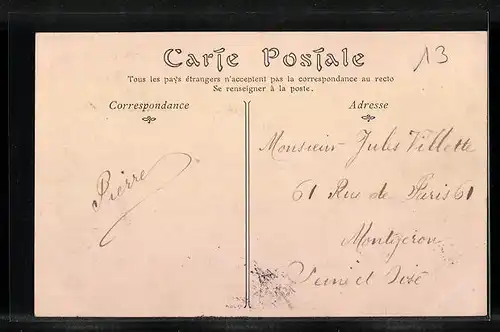 Carte Postale
13
Tous les pays étrangers n'acceptent pas la correspondance au recto
Se renseigner à la poste.
Correspondance
Adresse
Pierre
Monsieur Jules Villette
61 Rue de Paris 61
Montgeron
Seine et Oise